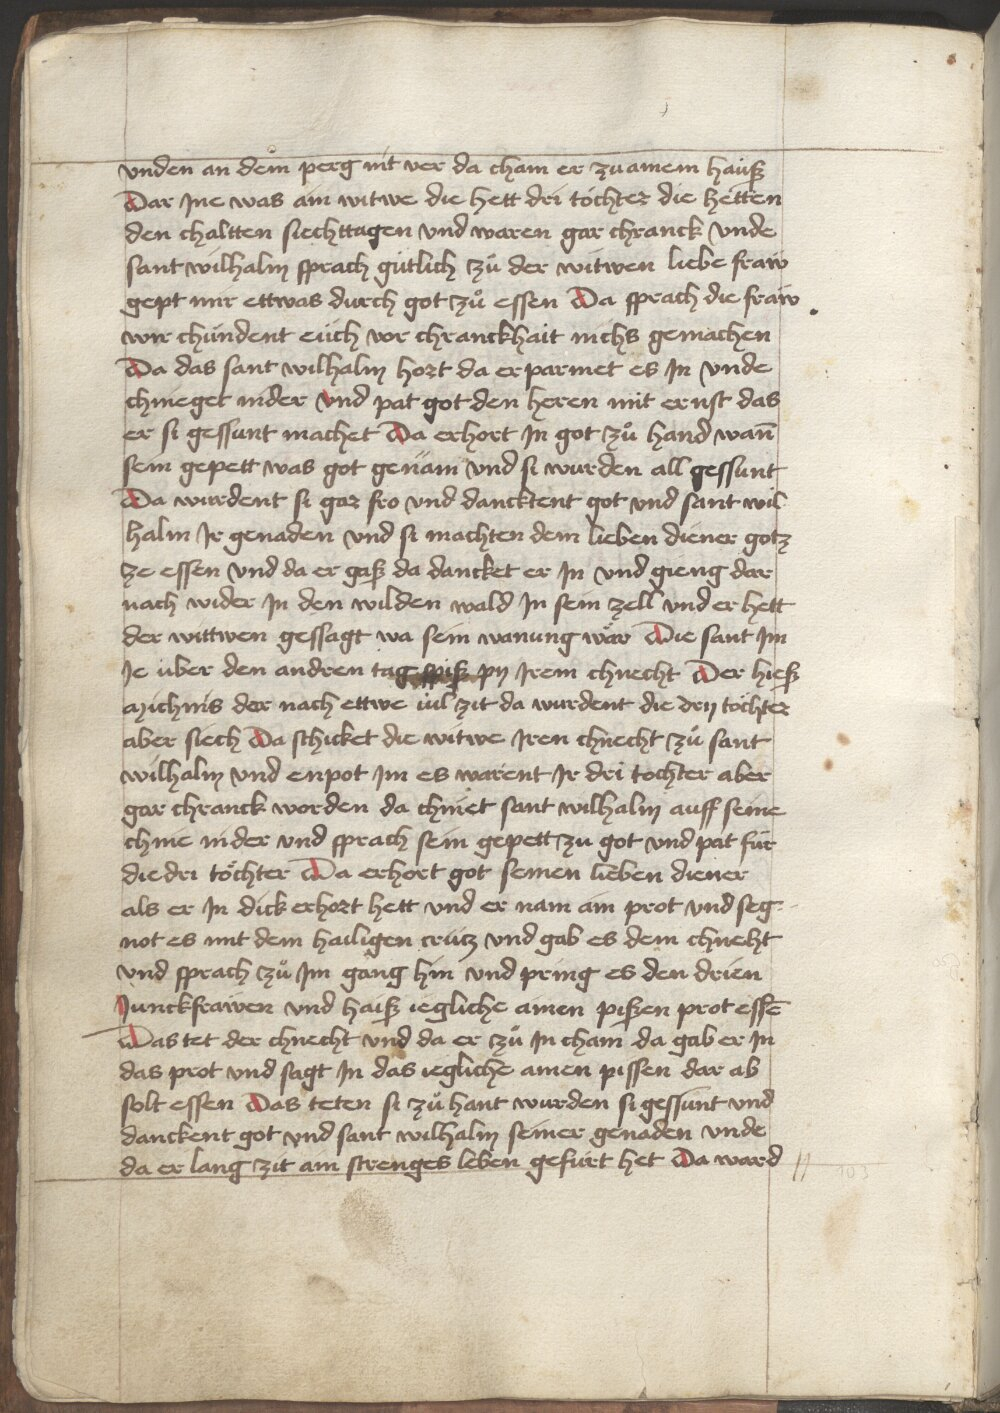 vnden an dem perg nit ver da cham er zu ainem hauß
Dar Jne was ain witwe die hett dri töchter die hetten
den chaltten siechttagen vnd waren gar chranck vnde
sant wilhalm sprach gütlich zů der witwen liebe fraw
gept mir ettwas durch got zů essen Da sprach die fraw
wir chündent eüch vor chranckhait nichs gemachen
Da das sant wilhalm hort da erparmet es Jn vnde
chnieget nider vnd pat got den heren mit ernst das
er si gessunt machet Da erhort Jn got zů hand wañ
sein gepett was got genäm vnd si wurden all gessunt
Da wurdent si gar fro vnd dancktent got vnd sant wil
halm Jr genaden vnd si machten dem lieben diener gotz
ze essen vnd da er gaß da dancket er Jn vnd gieng dar
nach wider Jn den wilden wald Jn sein zell vnd er hett
der wittwen gessagt wa sein wanung wär Die sant Jm
Je über den andren tag spiß py Jrem chnecht Der hieß
dar nach ettwe uil zit da wurdent die dry töchter
aber siech Da schicket die witwe Jren chnecht zů sant
wilhalm vnd enpot Jm es warent Jr dri tochter aber
gar chranck worden da chniet sant wilhalm auff seine
chnie nider vnd sprach sein gepett zu got vnd pat für
die dri töchter Da erhort got seinen lieben diener
als er Jn dick erhort hett vnd er nam ain prot vnd seg
not es mit dem hailigen crütz vnd gab es dem chneht
vnd sprach zů Jm gang hin vnd pring es den drien
Junckfrawen vnd haiß iegliche ainen pißen prot essē
Das tet der chnecht vnd da er zů Jn cham da gab er Jn
das prot vnd sagt Jn das iegliche ainen pissen dar ab
solt essen Das teten si zů hant wurden si gessunt vnd
danckent got vnd sant wilhalm seiner genaden vnde
da er lang zit ain strenges leben gefürt het Da ward
103